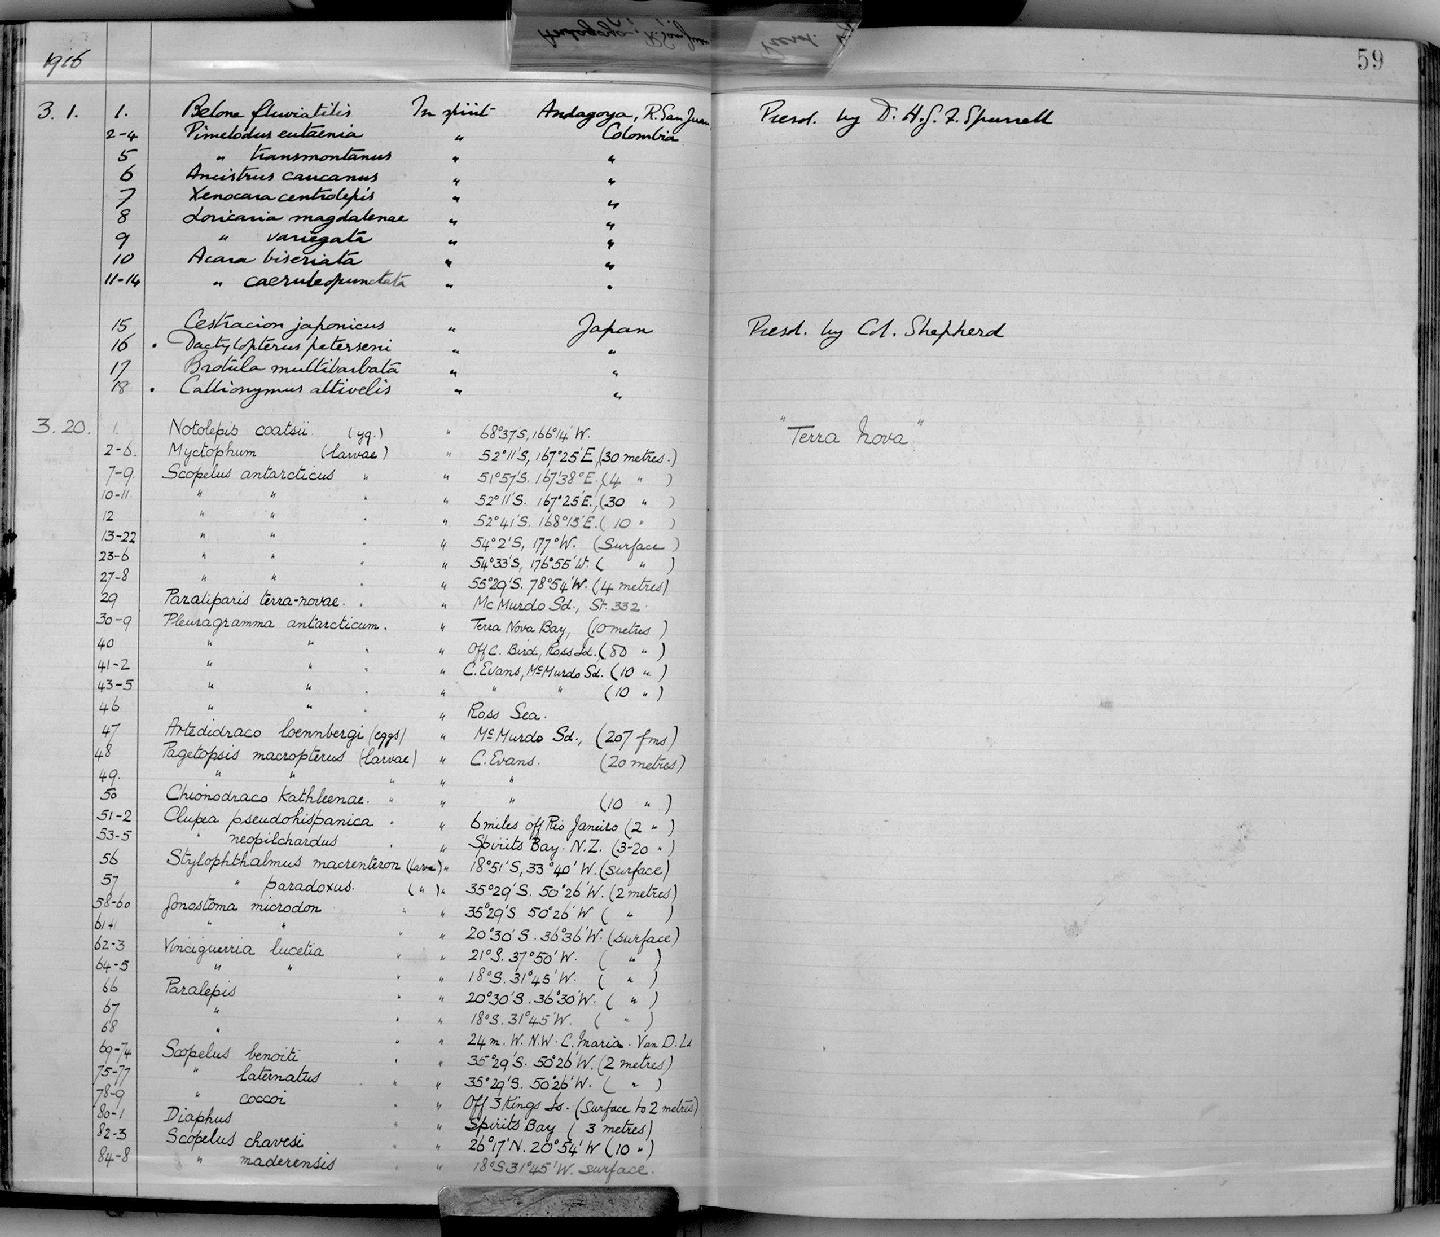 1916
59
3. 1. 1. Belone fluviatilis In spirit Andagoya, R. San Juan Presd. by Dr H. G. F. Spurrell
2-4 Pimelodus eutaenia " Colombia
5 " transmontanus " "
6 Ancistrus caucanus " "
7 Xenocara centrolepis " "
8 Loricaria magdalenae " "
9 " variegata " "
10 Acara biseriata " "
11-14 " caeruleopunctata " "
15 Cestracion japonicus " Japan Presd. by Col. Shepherd
16 • Dactylopterus peterseni " "
17 Brotula multibarbata " "
18 • Callionymus altivelis " "
3. 20. 1. Notolepis coatsii (yg.) " 68°37'S, 166°14'W. "Terra Nova"
2-6. Myctophum (larvae) " 52°11'S, 167°25'E, (30 metres.)
7-9 Scopelus antarcticus " " 51°57'S. 167°38'E. (4 " )
10-11 " " " 52°11'S. 167°25'E, (30 " )
12 " " " " 52°41'S. 168°13'E. ( 10 " )
13-22 " " " " 54°2'S, 177°W. (Surface )
23-6 " " " " 54°33'S, 176°55'W ( " )
27-8 " " " " 55°29'S. 78°54'W. (4 metres)
29 Paraliparis terra-novae. " " McMurdo Sd., St. 332.
30-9 Pleuragramma antarcticum. " Terra Nova Bay, (10 metres )
40 " " " " Off C. Bird, Ross Id. (80 " )
41-2 " " " " C. Evans, McMurdo Sd. (10 " )
43-5 " " " " " " (10 " )
46 " " " " Ross Sea.
47 Artedidraco loennbergi (eggs) " McMurdo Sd., (207 fms)
48 Pagetopsis macropterus (larvae) " C. Evans. (20 metres)
49. " " " " "
50 Chionodraco kathleenae. " " " (10 " )
51-2 Clupea pseudohispanica " " 6 miles off Rio Janeiro (2 " )
53-5 " neopilchardus " " Spirits Bay. N.Z. (3-20 " )
56 Stylophthalmus macrenteron (larva) " 18°51'S, 33°40'W. (surface)
57 " paradoxus. ( " ) " 35°29'S. 50°26'W. (2 metres)
58-60 Gonostoma microdon " " 35°29'S 50°26'W ( " )
61 " " " " 20°30'S. 36°36'W. (surface)
62-3 Vinciguerria lucetia " " 21°S. 37°50'W. ( " )
64-5 " " " " 18°S. 31°45'W. ( " )
66 Paralepis " " 20°30'S. 36°30'W. ( " )
67 " " " 18°S. 31°45'W. ( " )
68 " " " 24 m. W.N.W. C. Maria. Van D. Ld
69-74 Scopelus benoiti " " 35°29'S. 50°26'W. (2 metres)
75-77 " laternatus " " 35°29'S. 50°26'W. ( " )
78-9 " coccoi " " Off 3 Kings Is. (surface to 2 metres)
80-1 Diaphus " " Spirits Bay ( 3 metres)
82-3 Scopelus chavesi " " 26°17'N. 20°54'W (10 " )
84-8 " maderensis " " 18°S 31°45'W. surface.